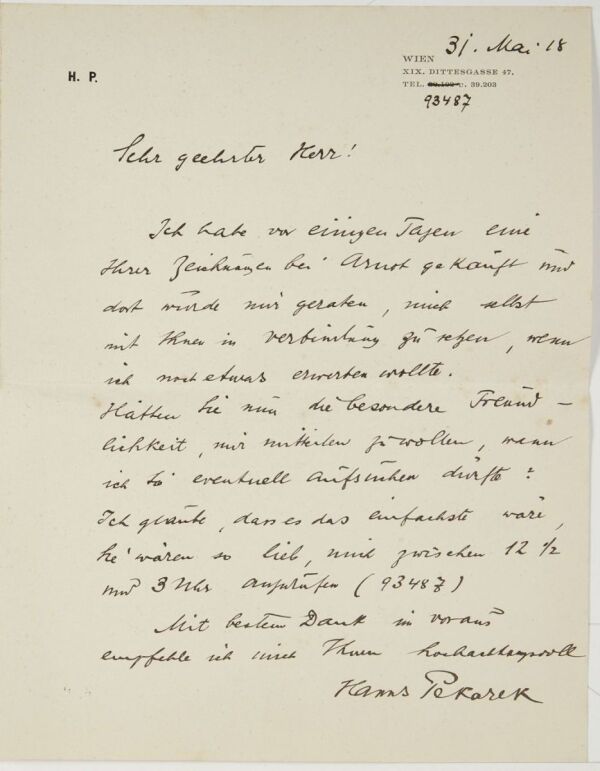 31. Mai 18
H. P.
WIEN
XIX. DITTESGASSE 47.
TEL. u. 39.203
93487
Sehr geehrter Herr!
Ich habe vor einigen Tagen eine
Ihrer Zeichnungen bei Arnot gekauft und
dort wurde mir geraten, mich selbst
mit Ihnen in Verbindung zu setzen, wenn
ich noch etwas erwerben wollte.
Hätten Sie nun die besondere Freund-
lichkeit, mir mitteilen zu wollen, wann
ich Sie eventuell aufsuchen dürfte?
Ich glaube, dass es das einfachste wäre,
Sie wären so lieb, mich zwischen 12 1/2
und 3 Uhr anzurufen (93487)
Mit bestem Dank im voraus
empfehle ich mich Ihnen hochachtungsvoll
Hanns Pekarek